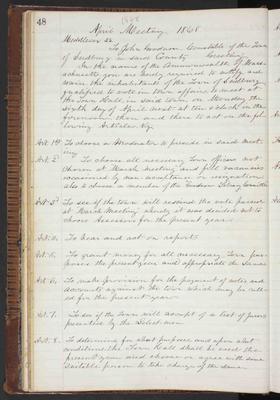 48
1868
April Meeting 1868
Middlesex ss.
To John Goodnow Constable of the Town
of Sudbury in said County Greeting
In the name of the Commonwealth of Mass-
achusetts you are hereby required to notify and
warn the inhabitants of the Town of Sudbury
qualified to vote in town affairs to meet at
the Town Hall in said Town on Monday the
sixth day of April next at ten o'clock in the
forenoon then and there to act on the fol-
lowing Articles viz
Art. 1st To choose a Moderator to preside in said meet-
ing
Art. 2d To choose all necessary Town officers not
chosen at March Meeting and fill vacancies
occasioned by non acceptance or resignation,
also to choose a member of the Goodnow Library Committee
Art. 3d To see if the town will rescind the vote passed
at March Meeting whereby it was decided not to
choose Assessors for the present year
Art. 4. To hear and act on reports
Art. 5. To grant money for all necessary Town pur-
poses the present year and appropriate the same
Art. 6. To make provision for the payment of notes and
accounts against the town which may be call-
ed for the present year
Art. 7. To see if the Town will accept of a list of jurors
presented by the Selectmen
Art. 8. To determine for what purposes and upon what
conditions the Town Hall shall be used the
present year and choose or agree with some
suitable person to take charge of the same